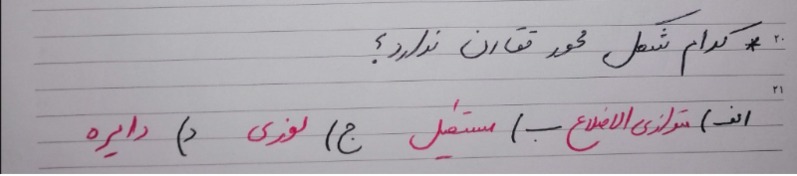 ۲۰ * کدام شکل محور تقارن ندارد؟
۲۱ الف) متوازی الاضلاع ب) مستطیل ج) لوزی د) دایره